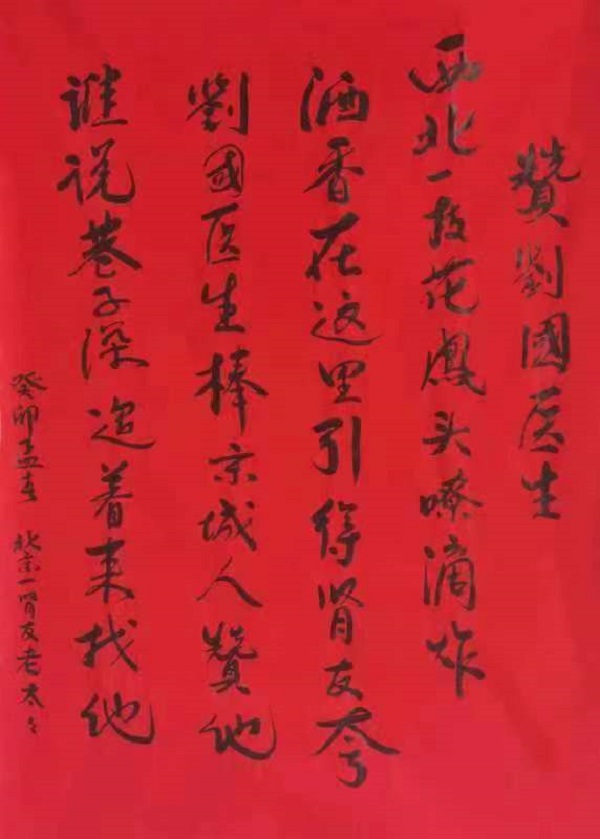 赞劉國医生
西北一枝花鳳头嘹滴炸
酒香在这里引得肾友夸
劉國医生棒京城人赞他
谁说巷子深追着来找他
癸卯孟春 北京一肾友老太々